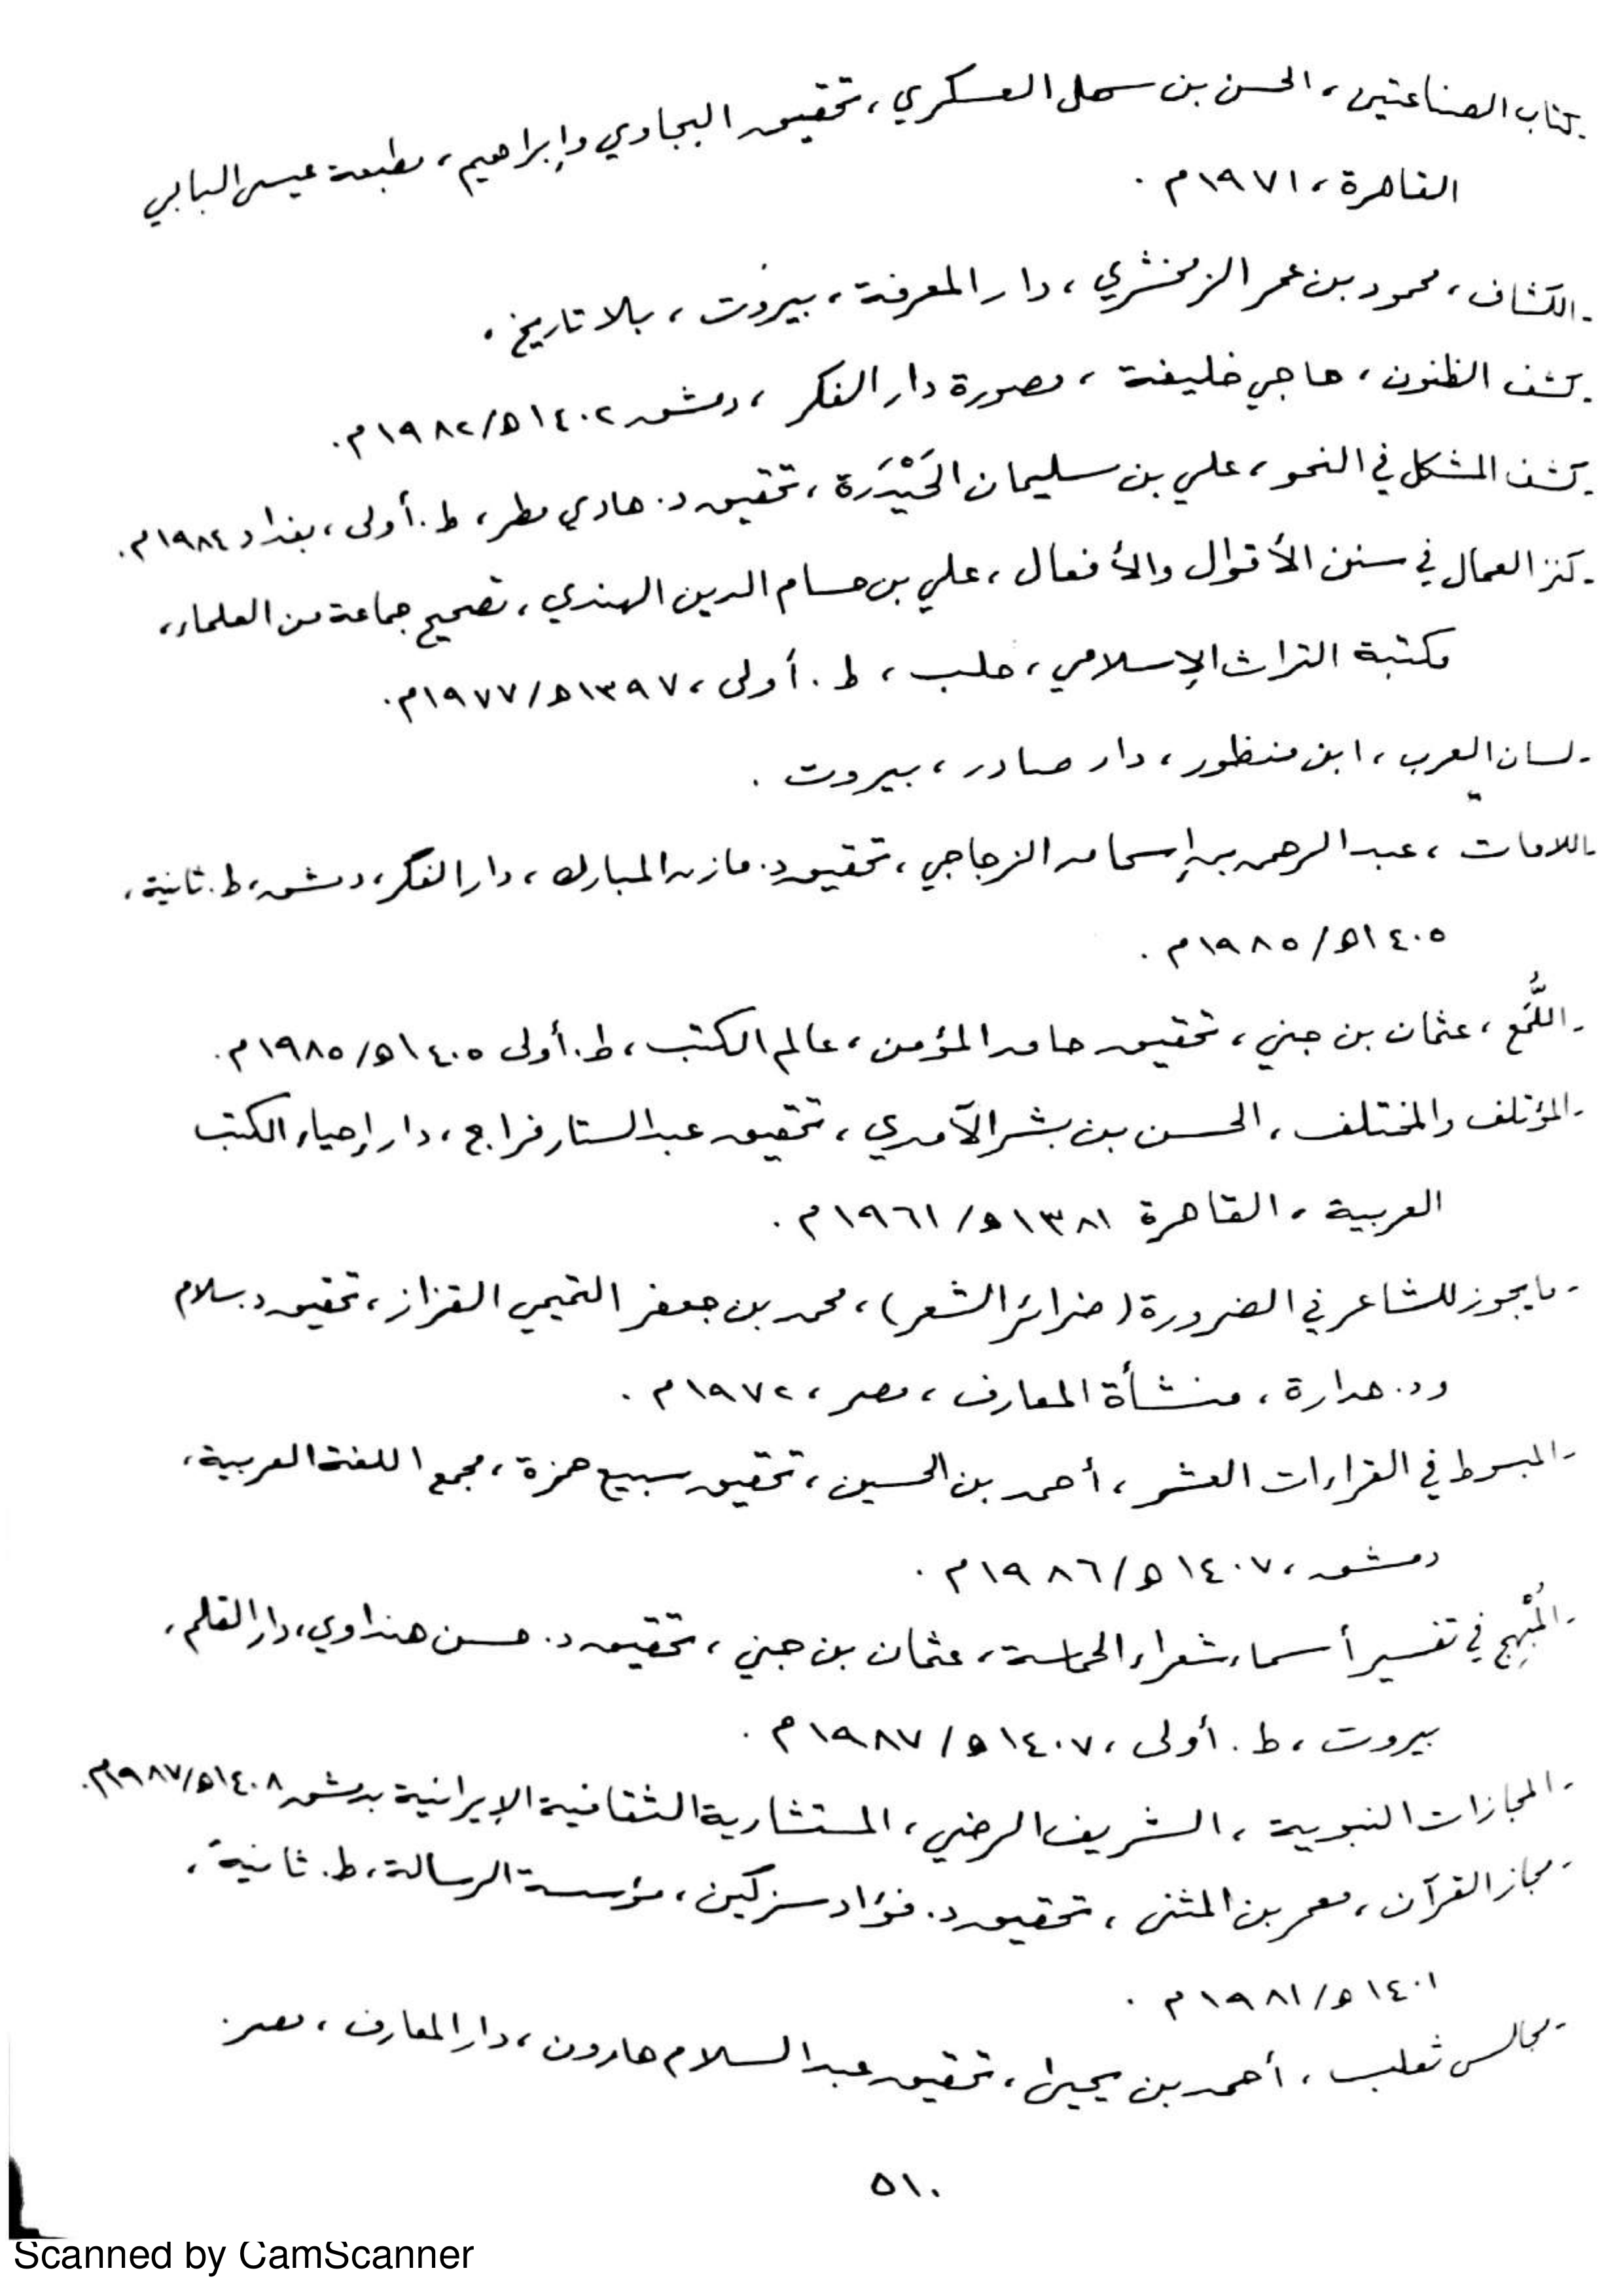 ـ كتاب الصناعتين، الحسن بن سهل العسكري، تحقيق البجاوي وإبراهيم، مطبعة عيسى البابي
القاهرة، ١٩٧١م.
ـ الكشاف، محمود بن عمر الزمخشري، دار المعرفة، بيروت، بلا تاريخ.
ـ كشف الظنون، حاجي خليفة، مصورة دار الفكر، دمشق ١٤٠٢ه/١٩٨٢م.
ـ كشف المشكل في النحو، علي بن سليمان الحَيْدَرَة، تحقيق د. هادي مطر، ط. أولى، بغداد ١٩٨٤م.
ـ كنز العمال في سنن الأقوال والأفعال، علي بن حسام الدين الهندي، تصحيح جماعة من العلماء،
مكتبة التراث الإسلامي، حلب، ط. أولى، ١٣٩٧ه/١٩٧٧م.
ـ لسان العرب، ابن منظور، دار صادر، بيروت.
ـ اللامات، عبد الرحمن بن إسحاق الزجاجي، تحقيق د. مازن المبارك، دار الفكر، دمشق، ط. ثانية،
١٤٠٥ه/١٩٨٥م.
ـ اللُّمَع، عثمان بن جني، تحقيق حامد المؤمن، عالم الكتب، ط. أولى ١٤٠٥ه/١٩٨٥م.
ـ المؤتلف والمختلف، الحسن بن بشر الآمدي، تحقيق عبد الستار فراج، دار إحياء الكتب
العربية، القاهرة ١٣٨١ه/١٩٦١م.
ـ ما يجوز للشاعر في الضرورة (ضرائر الشعر)، محمد بن جعفر التميمي القزاز، تحقيق د. سلام
ود. هدارة، منشأة المعارف، مصر، ١٩٧٢م.
ـ المبسوط في القراءات العشر، أحمد بن الحسين، تحقيق سبيع حمزة، مجمع اللغة العربية،
دمشق، ١٤٠٧ه/١٩٨٦م.
ـ المُبْهِج في تفسير أسماء شعراء الحماسة، عثمان بن جني، تحقيق د. حسن هنداوي، دار القلم،
بيروت، ط. أولى، ١٤٠٧ه/١٩٨٧م.
ـ المجازات النبوية، الشريف الرضي، المستشارية الثقافية الإيرانية بدمشق ١٤٠٨ه/١٩٨٧م.
ـ مجاز القرآن، معمر بن المثنى، تحقيق د. فؤاد سزكين، مؤسسة الرسالة، ط. ثانية،
١٤٠١ه/١٩٨١م.
ـ مجالس ثعلب، أحمد بن يحيى، تحقيق عبد السلام هارون، دار المعارف، مصر.
٥١٠
Scanned by CamScanner